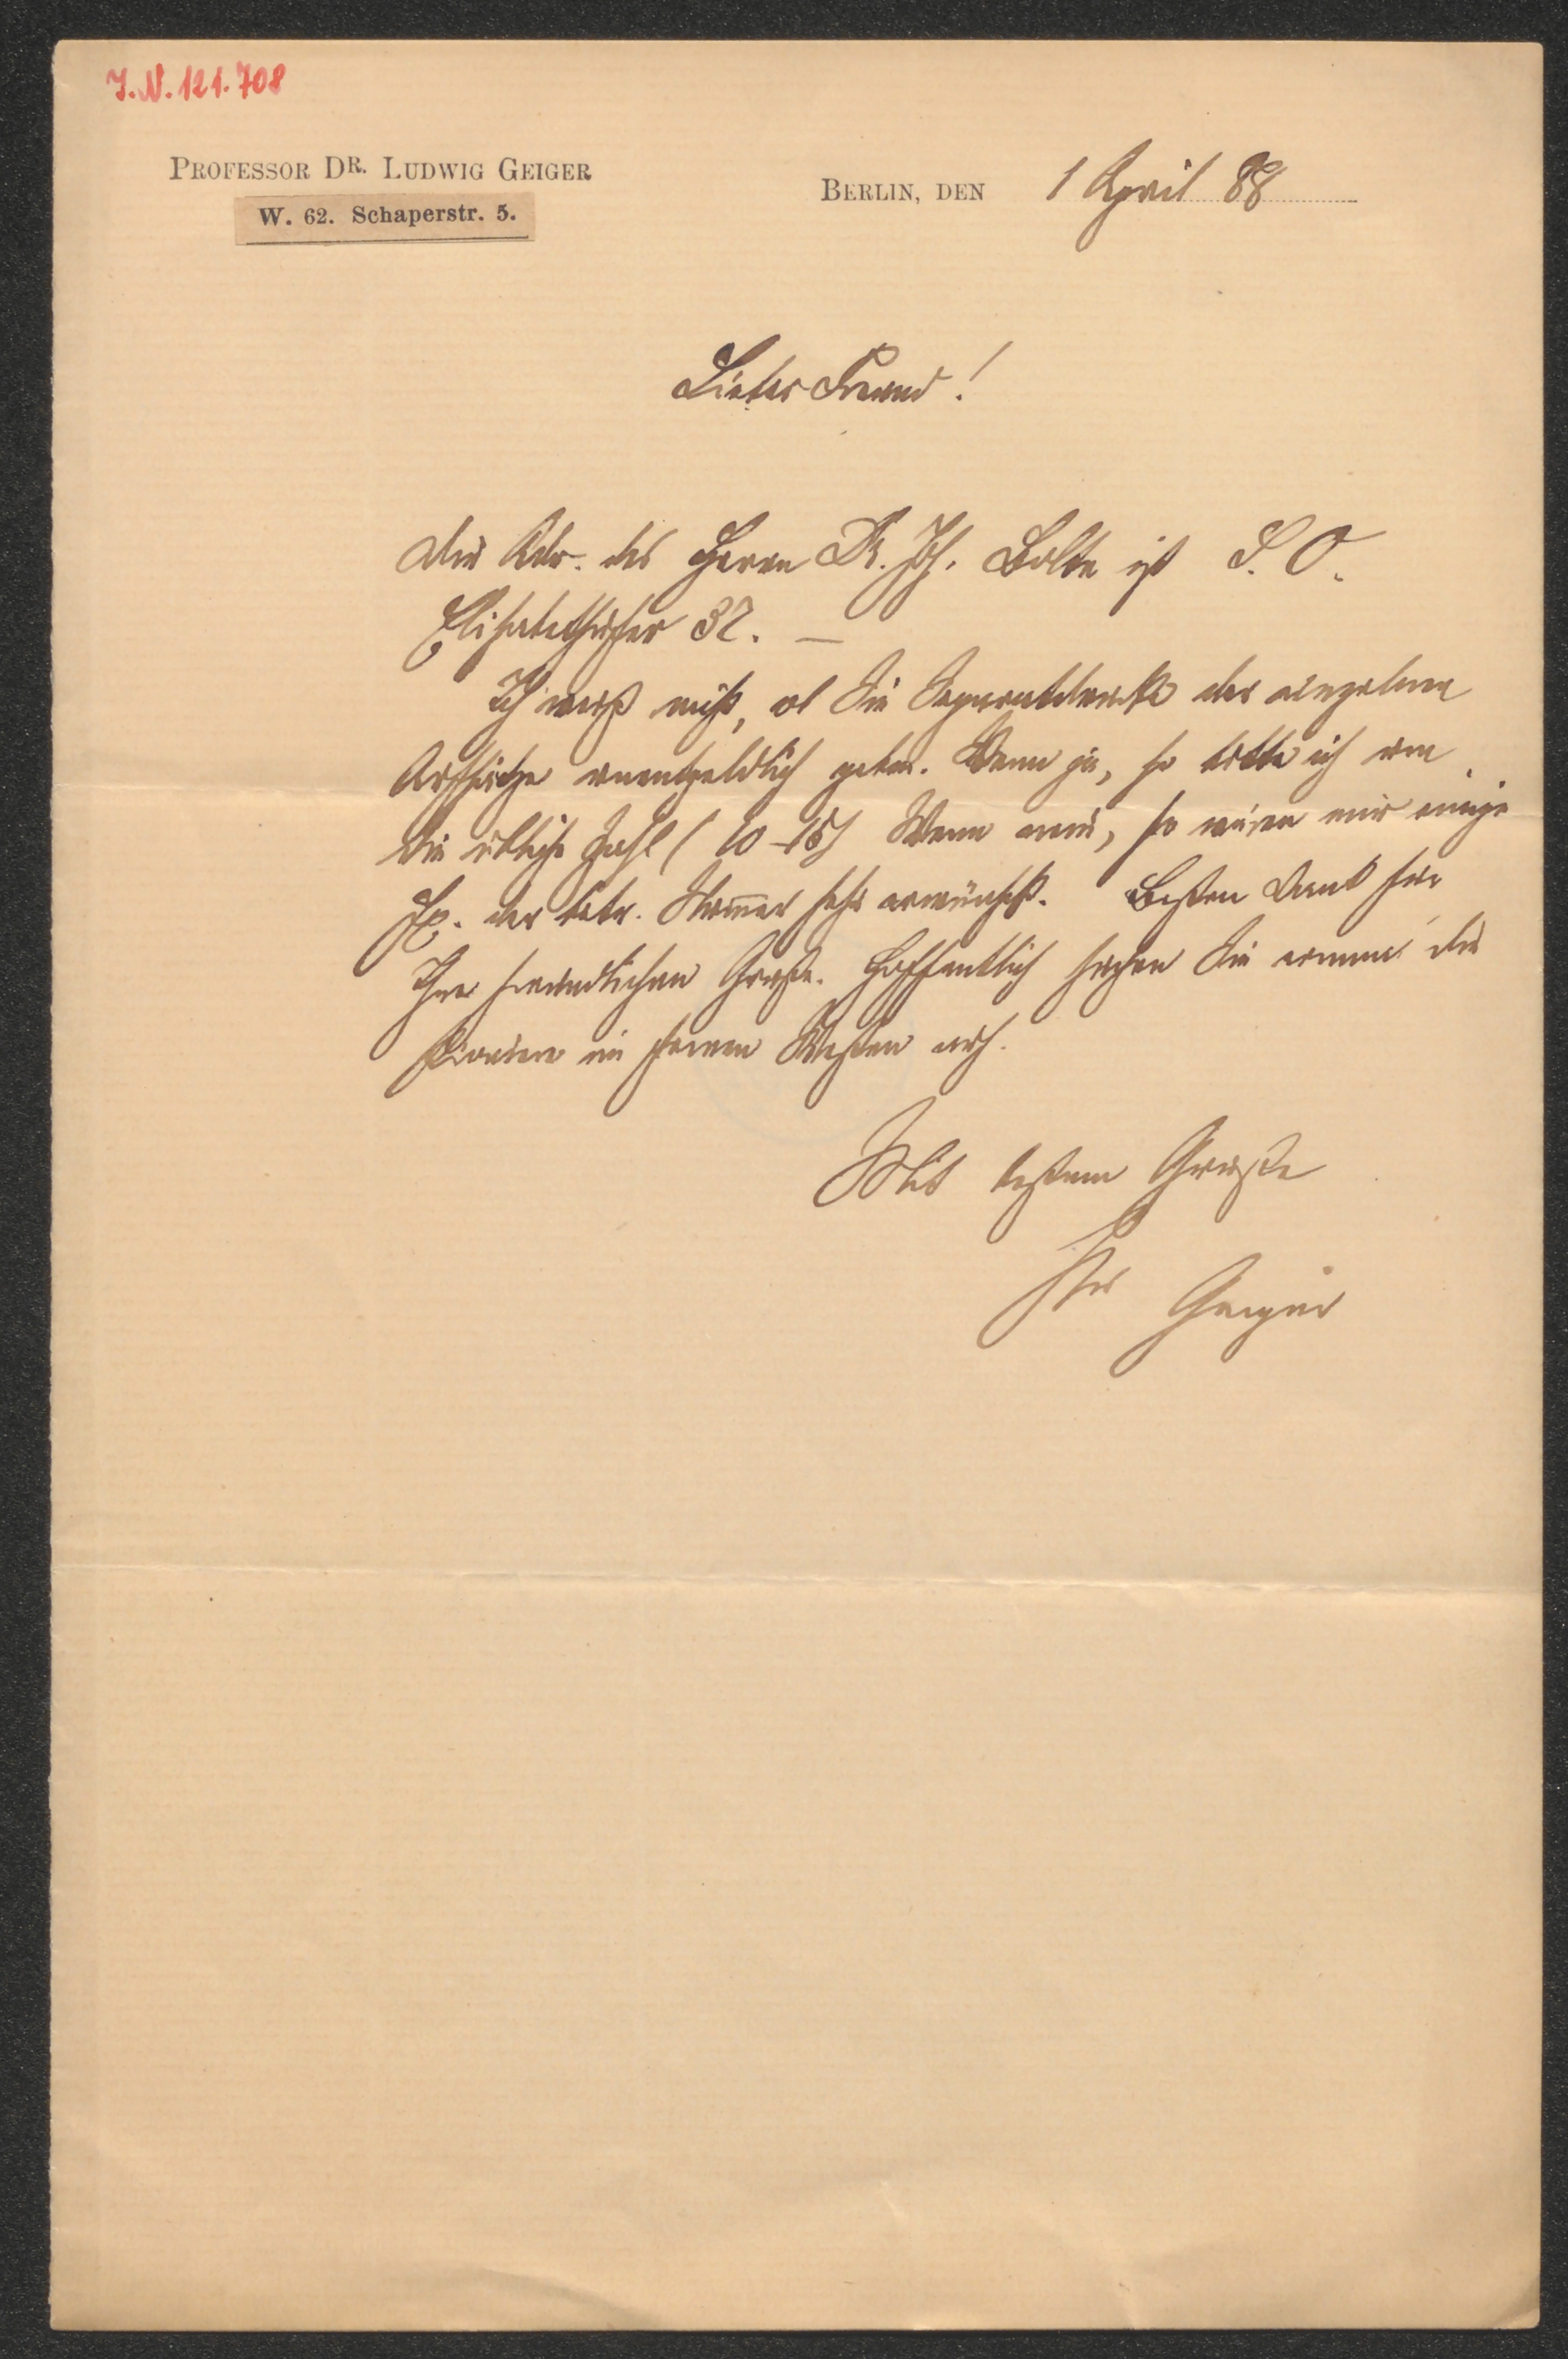 J.N. 121.708
PROFESSOR DR. LUDWIG GEIGER
W. 62. Schaperstr. 5.
BERLIN, DEN 1 April 88
Lieber Freund!
Die Adr. des Herrn Dr. Joh. Bolte ist S. O.
Elisabethufer 37. —
Ich weiß nicht, ob Sie Separatabdrücke der einzelnen
Aufsätze unentgeldlich geben. Wenn ja, so bitte ich um
die übliche Zahl (10–15) Wenn nein, so wären mir einige
Ex. der betr. Numer sehr erwünscht. Besten Dank für
Ihre freundlichen Grüße. Hoffentlich suchen Sie einmal die
Pioniere im fernen Westen auf.
Mit bestem Gruße
Ihr Geiger